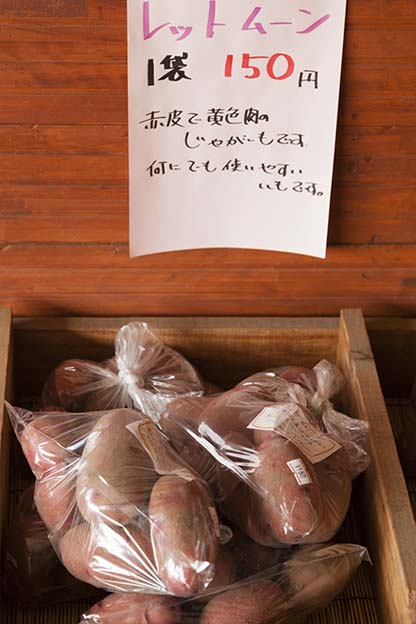 レットムーン
1袋 150円
赤皮で黄色肉の
じゃがいもです
何にでも使いやすい
いもです。
¥150